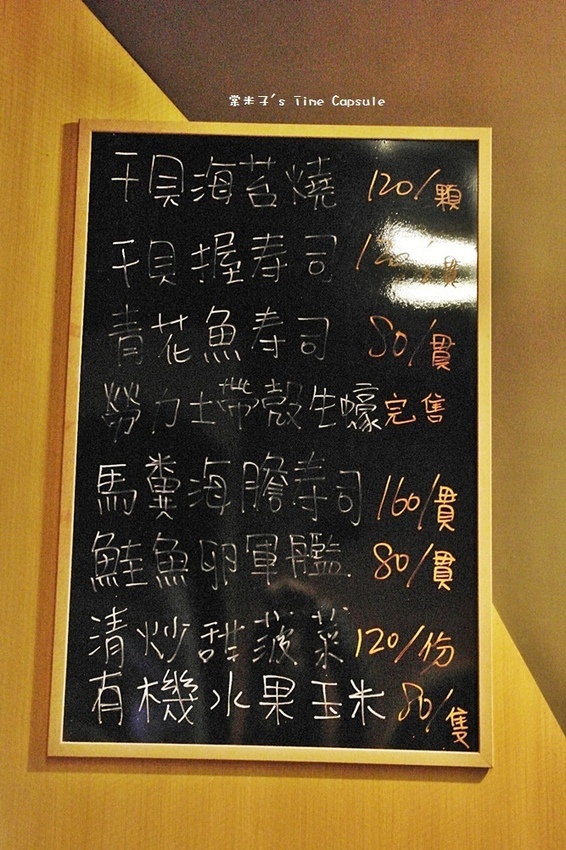 棠米子's Time Capsule
干貝海苔燒 120/顆
干貝握寿司 1
青花魚寿司 80/貫
勞力士帶殼生蠔完售
馬糞海膽寿司 160/貫
鮭魚卵軍艦 80/貫
清炒甜菠菜 120/份
有機水果玉米 80/隻